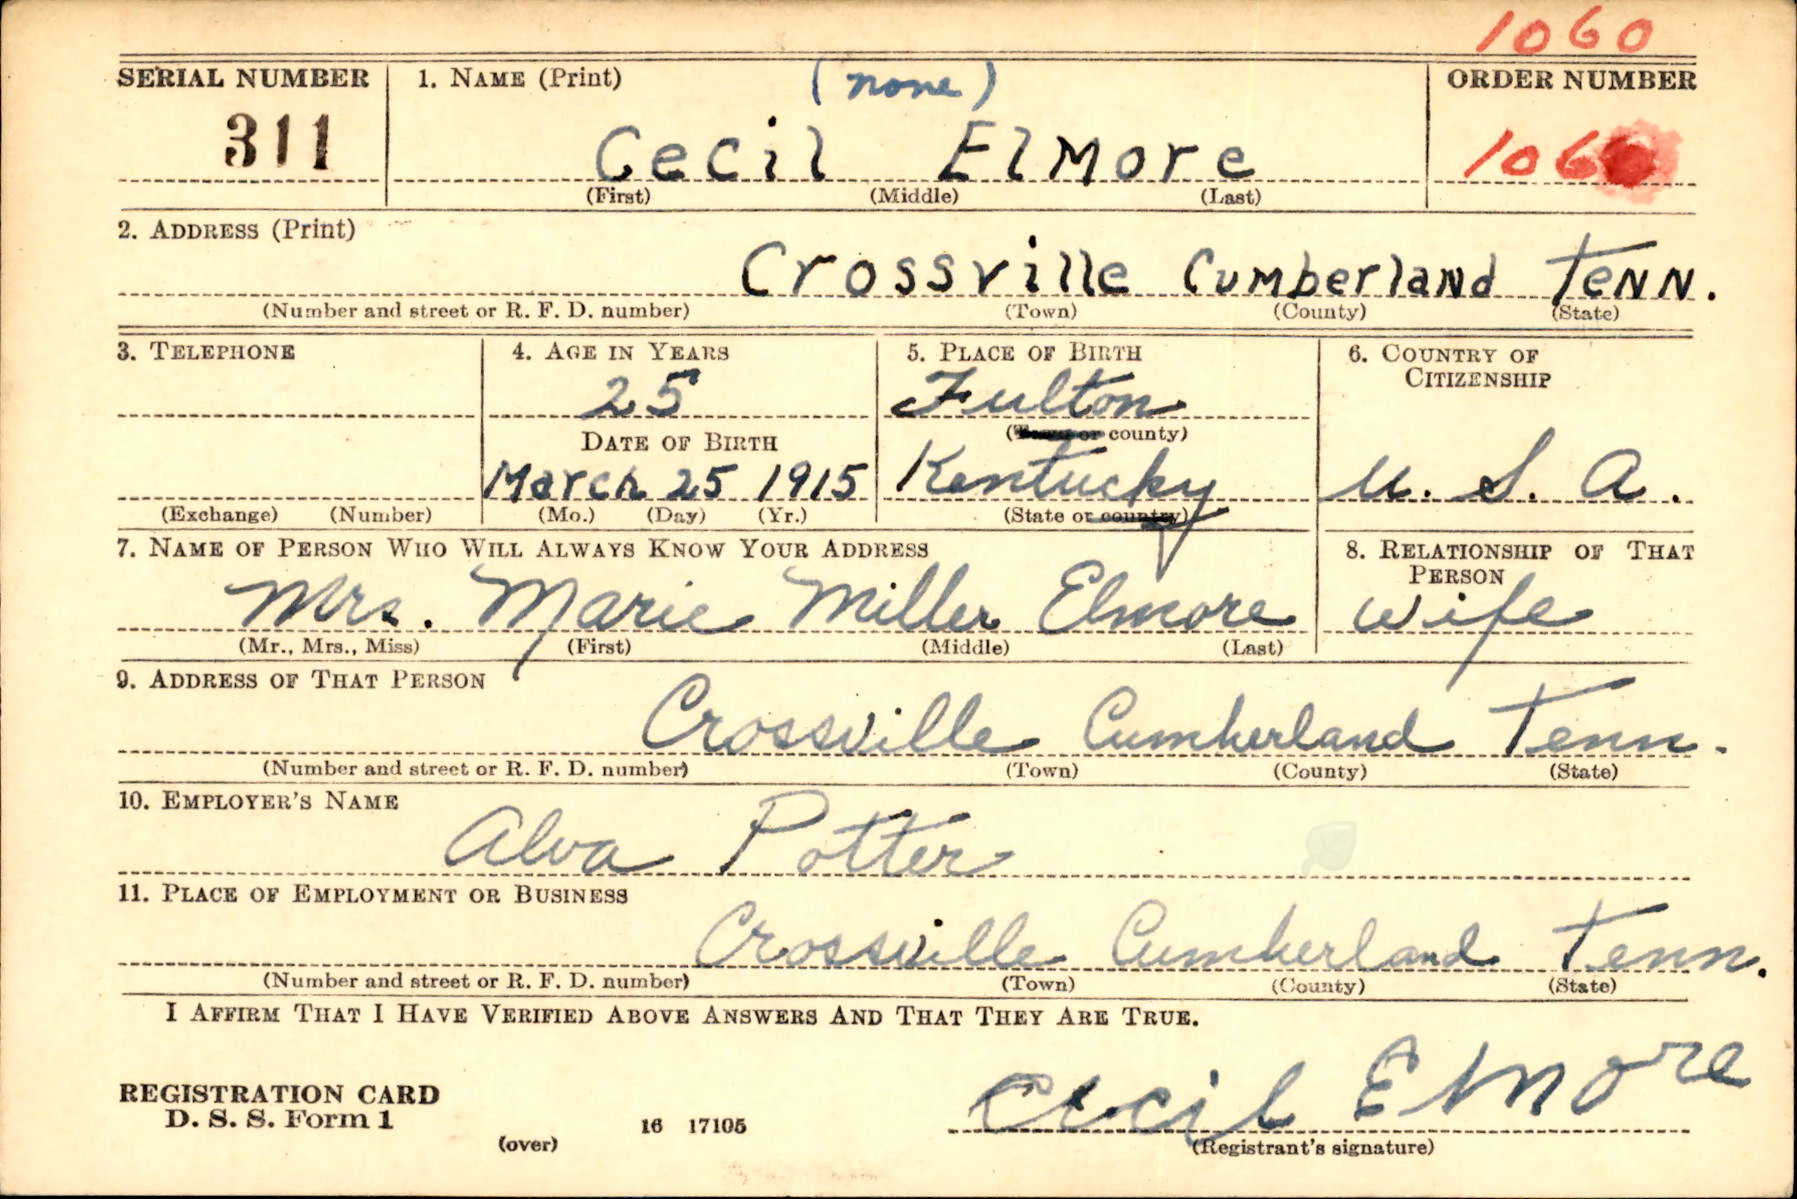 1060
SERIAL NUMBER 1. NAME (Print) (none) ORDER NUMBER
311 Cecil Elmore 106
(First) (Middle) (Last)
2. ADDRESS (Print)
Crossville Cumberland Tenn.
(Number and street or R. F. D. number) (Town) (County) (State)
3. TELEPHONE 4. AGE IN YEARS 5. PLACE OF BIRTH 6. COUNTRY OF
CITIZENSHIP
25 Fulton
DATE OF BIRTH (Town or county)
March 25 1915 Kentucky U. S. A.
(Exchange) (Number) (Mo.) (Day) (Yr.) (State or country)
7. NAME OF PERSON WHO WILL ALWAYS KNOW YOUR ADDRESS 8. RELATIONSHIP OF THAT
PERSON
Mrs. Marie Miller Elmore wife
(Mr., Mrs., Miss) (First) (Middle) (Last)
9. ADDRESS OF THAT PERSON
Crossville Cumberland Tenn.
(Number and street or R. F. D. number) (Town) (County) (State)
10. EMPLOYER'S NAME
Alva Potter
11. PLACE OF EMPLOYMENT OR BUSINESS
Crossville Cumberland Tenn.
(Number and street or R. F. D. number) (Town) (County) (State)
I AFFIRM THAT I HAVE VERIFIED ABOVE ANSWERS AND THAT THEY ARE TRUE.
REGISTRATION CARD
D. S. S. Form 1
(over) 16 17105
Cecil Elmore
(Registrant's signature)